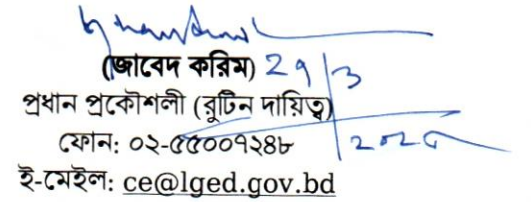 (জাবেদ করিম) ২৭/৩
প্রধান প্রকৌশলী (রুটিন দায়িত্ব)
ফোন: ০২-৫৫০০৭২৪৮ ২০২৫
ই-মেইল: ce@lged.gov.bd